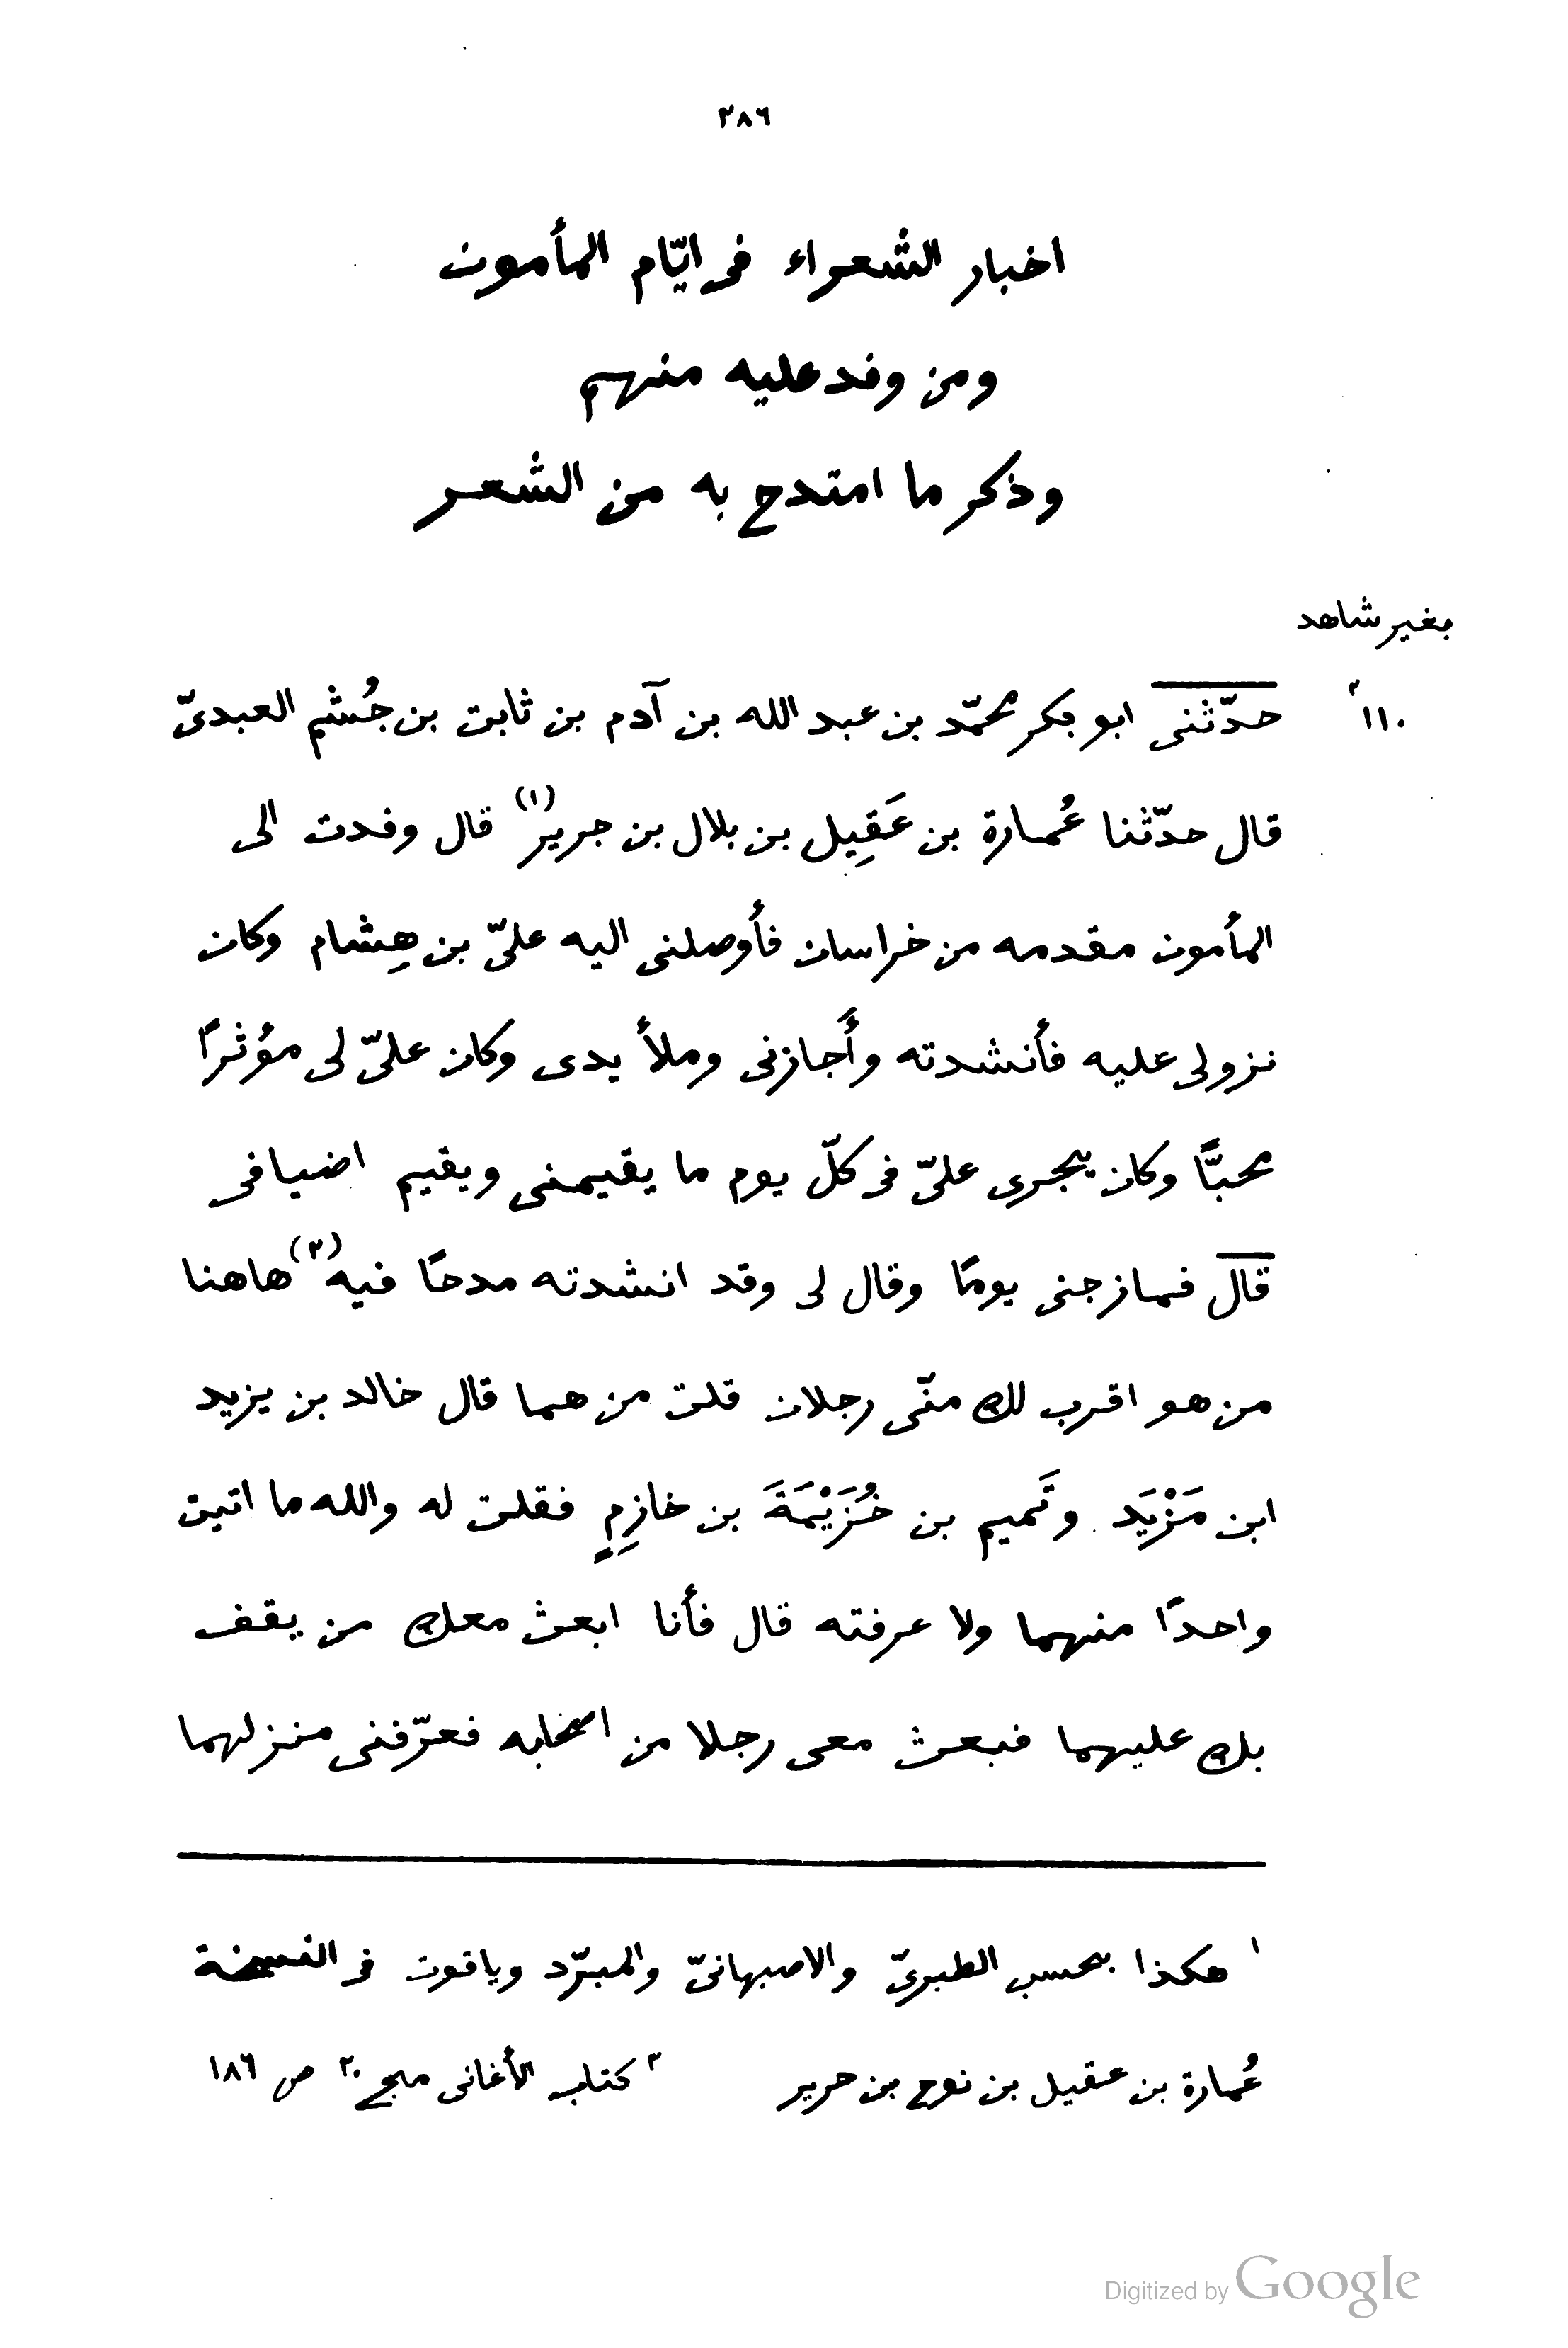 ٢٨٦
اخبار الشعراء فى ايّام المأمون
ومن وفد عليه منهم
وذكر ما امتدح به من الشعر
بغير شاهد
١١٠٢
حدّثنى ابو بكر محمّد بن عبد الله بن آدم بن ثابت بن جُشم العبدىّ
قال حدّثنا عُمارة بن عَقِيل بن بلال بن جرير(١) قال وفدت الى
المأمون مقدمه من خراسان فأوصلنى اليه علىّ بن هِشام وكان
نزولى عليه فأنشدته وأَجازنى وملأ يدى وكان علىّ لى مؤثرًا
محبًّا وكان يجرى علىّ فى كلّ يوم ما يقيمنى ويقيم اضيافى
قال فمازجنى يومًا وقال لى وقد انشدته مدحًا فيه(٢) هاهنا
من هو اقرب لك منّى رجلان قلت من هما قال خالد بن يزيد
ابن مَزْيَد وتَميم بن خُزَيْمَةَ بن خازِمٍ فقلت له والله ما اتيت
واحدًا منهما ولا عرفته قال فأنا ابعث معك من يقف
بك عليهما فبعث معى رجلا من اصحابه فعرّفنى منزلهما
١ هكذا بحسب الطبرىّ والاصبهانىّ والمبرّد وياقوت فى النسخة
عُمارة بن عقيل بن نوح بن حرير ٢ كتاب الأغانى مجـ ٢٠ ص ١٨٦
Digitized by Google